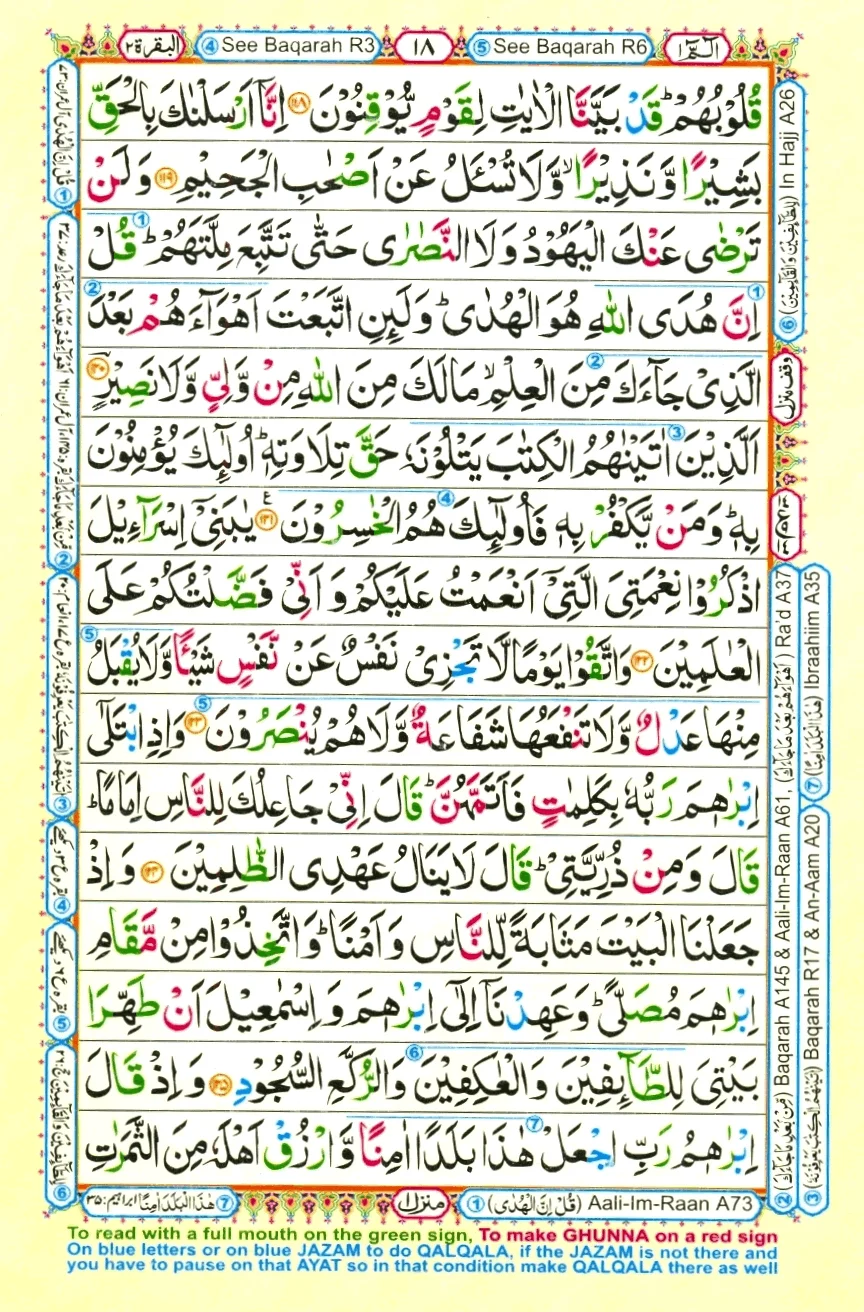 البقرة ٢
④ See Baqarah R3
١٨
⑤ See Baqarah R6
الٓمّٓ ١
قُلُوْبُهُمْ ؕ قَدْ بَيَّنَّا الْاٰيٰتِ لِقَوْمٍ يُّوْقِنُوْنَ ﴿۱۱۸﴾ اِنَّاۤ اَرْسَلْنٰكَ بِالْحَقِّ
بَشِيْرًا وَّ نَذِيْرًا ۙ وَّلَا تُسْـَٔلُ عَنْ اَصْحٰبِ الْجَحِيْمِ ﴿۱۱۹﴾ وَ لَنْ
تَرْضٰى عَنْكَ الْيَهُوْدُ وَ لَا النَّصٰرٰى حَتّٰى تَتَّبِعَ مِلَّتَهُمْ ؕ ① قُلْ
① اِنَّ هُدَى اللّٰهِ هُوَ الْهُدٰى ؕ وَ لَىِٕنِ اتَّبَعْتَ اَهْوَآءَ هُمْ بَعْدَ ②
الَّذِيْ جَآءَكَ مِنَ الْعِلْمِ ۙ ② مَا لَكَ مِنَ اللّٰهِ مِنْ وَّلِيٍّ وَّ لَا نَصِيْرٍ ﴿۱۲۰﴾
اَلَّذِيْنَ ③ اٰتَيْنٰهُمُ الْكِتٰبَ يَتْلُوْنَهٗ حَقَّ تِلَاوَتِهٖ ؕ اُولٰٓىِٕكَ يُؤْمِنُوْنَ
بِهٖ ؕ وَ مَنْ يَّكْفُرْ بِهٖ فَاُولٰٓىِٕكَ ④ هُمُ الْخٰسِرُوْنَ ﴿۱۲۱﴾ ع يٰبَنِيْۤ اِسْرَآءِيْلَ
اذْكُرُوْا نِعْمَتِيَ الَّتِيْۤ اَنْعَمْتُ عَلَيْكُمْ وَ اَنِّيْ فَضَّلْتُكُمْ عَلَى
الْعٰلَمِيْنَ ﴿۱۲۲﴾ وَ اتَّقُوْا يَوْمًا لَّا تَجْزِيْ نَفْسٌ عَنْ نَّفْسٍ شَيْـًٔا وَّ لَا يُقْبَلُ ⑤
مِنْهَا عَدْلٌ وَّ لَا تَنْفَعُهَا شَفَاعَةٌ وَّ لَا هُمْ يُنْصَرُوْنَ ⑤ ﴿۱۲۳﴾ وَ اِذِ ابْتَلٰۤى
اِبْرٰهٖمَ رَبُّهٗ بِكَلِمٰتٍ فَاَتَمَّهُنَّ ؕ قَالَ اِنِّيْ جَاعِلُكَ لِلنَّاسِ اِمَامًا ؕ
قَالَ وَ مِنْ ذُرِّيَّتِيْ ؕ قَالَ لَا يَنَالُ عَهْدِي الظّٰلِمِيْنَ ﴿۱۲۴﴾ وَ اِذْ
جَعَلْنَا الْبَيْتَ مَثَابَةً لِّلنَّاسِ وَ اَمْنًا ؕ وَ اتَّخِذُوْا مِنْ مَّقَامِ
اِبْرٰهٖمَ مُصَلًّى ؕ وَ عَهِدْنَاۤ اِلٰۤى اِبْرٰهٖمَ وَ اِسْمٰعِيْلَ اَنْ طَهِّرَا
بَيْتِيَ لِلطَّآىِٕفِيْنَ وَ الْعٰكِفِيْنَ ⑥ وَ الرُّكَّعِ السُّجُوْدِ ﴿۱۲۵﴾ وَ اِذْ قَالَ
اِبْرٰهٖمُ رَبِّ اجْعَلْ ⑦ هٰذَا بَلَدًا اٰمِنًا وَّ ارْزُقْ اَهْلَهٗ مِنَ الثَّمَرٰتِ
⑦ هٰذَا الْبَلَدَ اٰمِنًا ابراہیم: ۳۵
منزل ١
① (قُلْ اِنَّ الْهُدٰى) Aali-Im-Raan A73
⑥ (لِلطَّآىِٕفِيْنَ وَالْقَآىِٕمِيْنَ) In Hajj A26
وقف منزل
② (مِنْۢ بَعْدِ مَا جَآءَكَ) Baqarah A145 & Aali-Im-Raan A61, (اَهْوَآءَهُمْ بَعْدَ مَا جَآءَكَ) Ra'd A37
③ (اٰتَيْنٰهُمُ الْكِتٰبَ يَعْرِفُوْنَهٗ) Baqarah R17 & An-Aam A20
⑦ (هٰذَا الْبَلَدَ اٰمِنًا) Ibraahiim A35
To read with a full mouth on the green sign, To make GHUNNA on a red sign
On blue letters or on blue JAZAM to do QALQALA, if the JAZAM is not there and
you have to pause on that AYAT so in that condition make QALQALA there as well